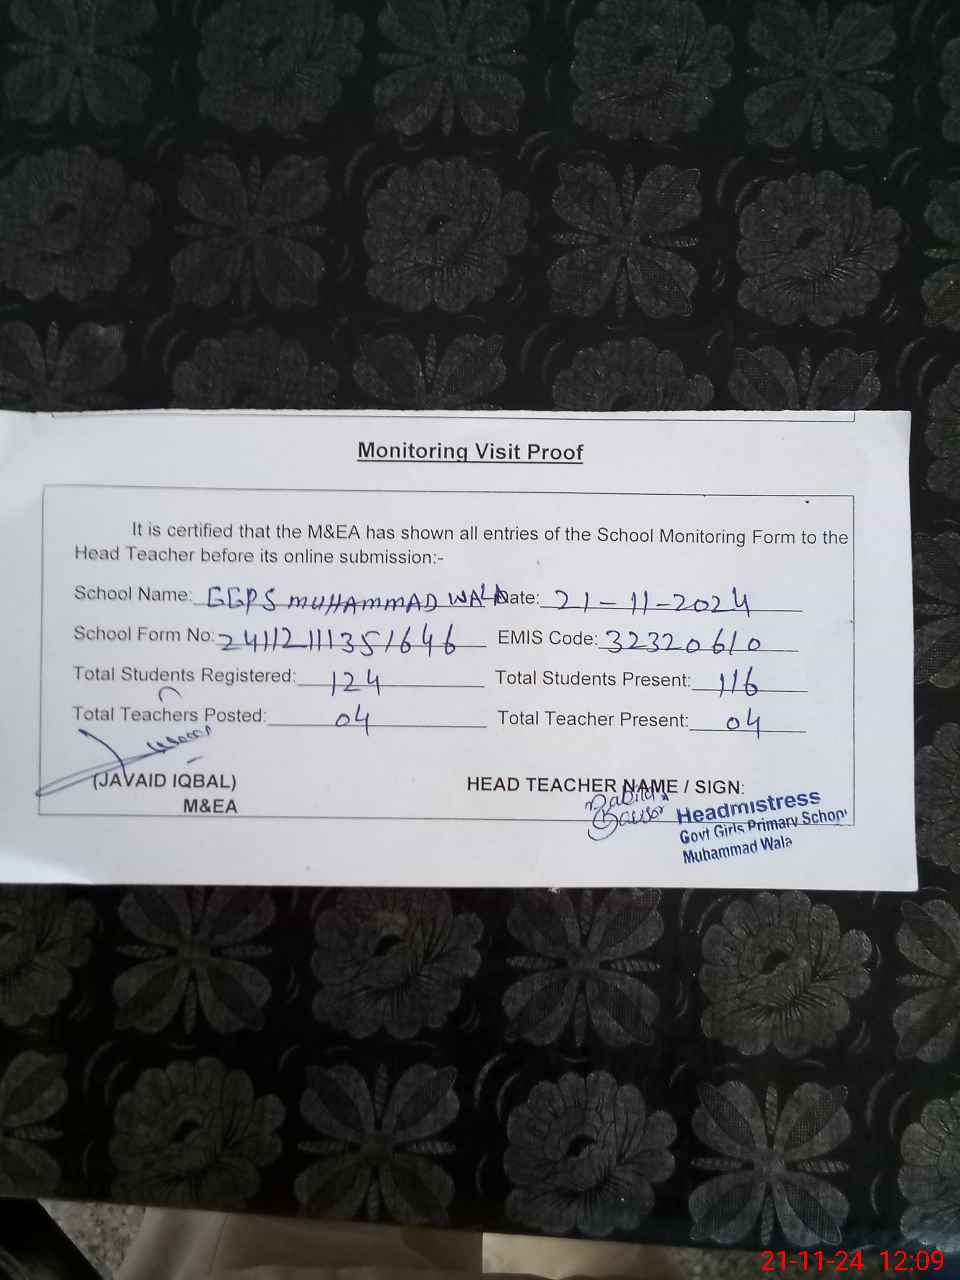 Monitoring Visit Proof
It is certified that the M&EA has shown all entries of the School Monitoring Form to the
Head Teacher before its online submission:-
School Name: GGPS MUHAMMAD WALA Date: 21-11-2024
School Form No: 24112111351646 EMIS Code: 32320610
Total Students Registered: 124 Total Students Present: 116
Total Teachers Posted: 04 Total Teacher Present: 04
(JAVAID IQBAL) HEAD TEACHER NAME / SIGN:
M&EA
Headmistress
Govt Girls Primary School
Muhammad Wala
21-11-24 12:09